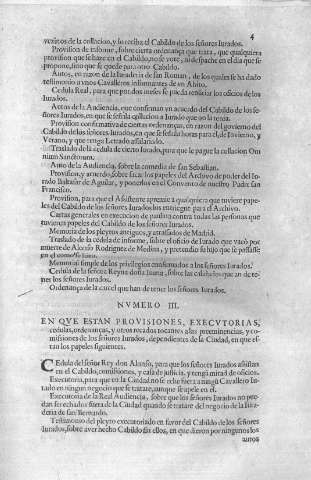 4
vezinos de la collacion, y lo reciba el Cabildo de los señores Iurados.
Provision de informe, sobre cierta ordenança que trata, que qualquiera
provision que se haze en el Cabildo, no se vote, ni despache en el dia que se
propone, sino que se quede para otro Cabildo.
Autos, en razon de la Iuraderia de san Roman, de los quales se ha dado
testimonio a vnos Cavalleros informantes de vn Abito.
Cedula Real, para que por dos meses se pueda renunciar los oficios de los
Iurados.
Actos de la Audiencia, que confirman vn acuerdo del Cabildo de los se-
ñores Iurados, en que se señala collacion a Iurado que no la tenia.
Provision confirmativa de ciertas ordenanças, en razon del govierno del
Cabildo de los señores Iurados, en que se señala horas para el, de Invierno, y
Verano, y que tenga Letrado assalariado.
Traslado de la cedula de cierto Iurado, para que le pague la collacion Om
nium Sanctorum.
Auto de la Audiencia, sobre la comedia de san Sebastian.
Provision, y acuerdo, sobre sacar los papeles del Archivo de poder del Iu-
rado Baltasar de Aguilar, y ponerlos en el Convento de nuestro Padre san
Francisco.
Provision, para que el Assistente apremie a qualquiera que tuviere pape-
les del Cabildo de los señores Iurados los entregue para el Archivo.
Cartas generales en execucion de paulina contra todas las personas que
tuvieren papeles del Cabildo de los señores Iurados.
Memoria de los pleytos antiguos, y atrassados de Madrid.
Traslado de la cedula de informe, sobre el oficio de Iurado que vacò por
muerte de Alonso Rodriguez de Medina, y pretendio su hijo que se le passasse
en el
Memorial simple de los privilegios confirmados a los señores Iurados.
Cedula de la señora Reyna doña Iuana, sobre las calidades que an de te-
ner los señores Iurados.
Ordenança de la carcel que han de tener los señores Iurados.
NVMERO III.
EN QVE ESTAN PROVISIONES, EXECVTORIAS,
cedulas, ordenanças, y otros recados tocantes a las preeminencias, y co-
misiones de los señores Iurados, dependientes de la Ciudad, en que es-
tan los papeles siguientes.
CEdula del señor Rey don Alonso, para que los señores Iurados assistan
en el Cabildo, comisiones, y casa de justicia, y tenga mitad de oficios.
Executoria, para que en la Ciudad no se eche fuera a ningũ Cavallero Iu-
rado en ningun negocio que se tratare, aunque se apele en el.
Executoria de la Real Audiencia, sobre que los señores Iurados no pue-
dan ser echados fuera de la Ciudad quando se tratare del negocio de la Iura-
deria de san Bernardo.
Testimonio del pleyto executoriado en favor del Cabildo de los señores
Iurados, sobre aver hecho Cabildo sin ellos, en que dieron por ningunos los
autos